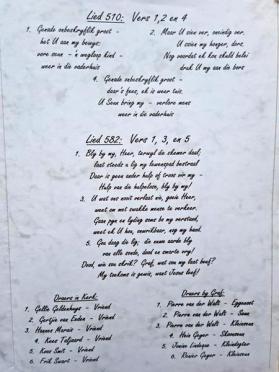 Lied 510: Vers 1,2 en 4
1. Genade onbeskryflik groot -
het U aan my bewys:
vore seun - 'n wegloop kind -
weer in die vaderhuis
2. Maar U sien ver, oneindig ver.
U ssien my honger, dors.
Nog voordat ek kon skuld bely
druk U my aan die bors
4. Genade onbeskryflik groot -
daar's fees, ek is weer tuis.
U Seun bring my - verlore mens
weer in die vaderhuis
Lied 582: Vers 1, 3, en 5
1. Bly by my, Heer, terwyl die skemer daal,
laat steeds u lig my lewenspad bestraal
Daar is geen ander hulp of troos vir my -
Hulp van die hulpelose, bly by my!
3. U wat ons nooit verlaat nie, goeie Heer,
weet om met swakke mense te verkeer.
Gaan pyn en lyding soms bo my verstand,
weet ek U hou, onwrikbaar, nog my hand.
5. Gee daag die lig; die enum aarde bly
van alle sonde, dood en smarte vry!
Dood, wie sou skrik? Graf, wat sou my laat beef?
My toekoms is gewis, want Jesus leef!
Draers in Kerk:
1. Gellie Geldenhuys - Vriend
2. Gertjie van Eeden - Vriend
3. Hannes Marais - Vriend
4. Kees Taljaard - Vriend
5. Koos Smit - Vriend
6. Frik Swart - Vriend
Draers by Graf:
1. Pierre van der Walt - Eggenoot
2. Pierre van der Walt - Seun
3. Pierre van der Walt - Kleinseun
4. Heio Geyer - Skoonseun
5. Janien Lindeque - Kleindogter
6. Renier Geyer - Kleinseun